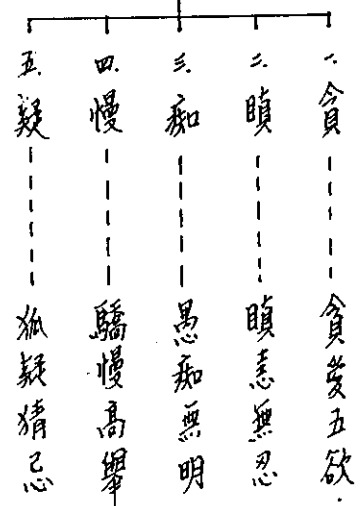 一.貪-----貪愛五欲.
二.瞋-----瞋恚無忍
三.痴-----愚痴無明
四.慢-----驕慢高舉
五.疑-----狐疑猜忌